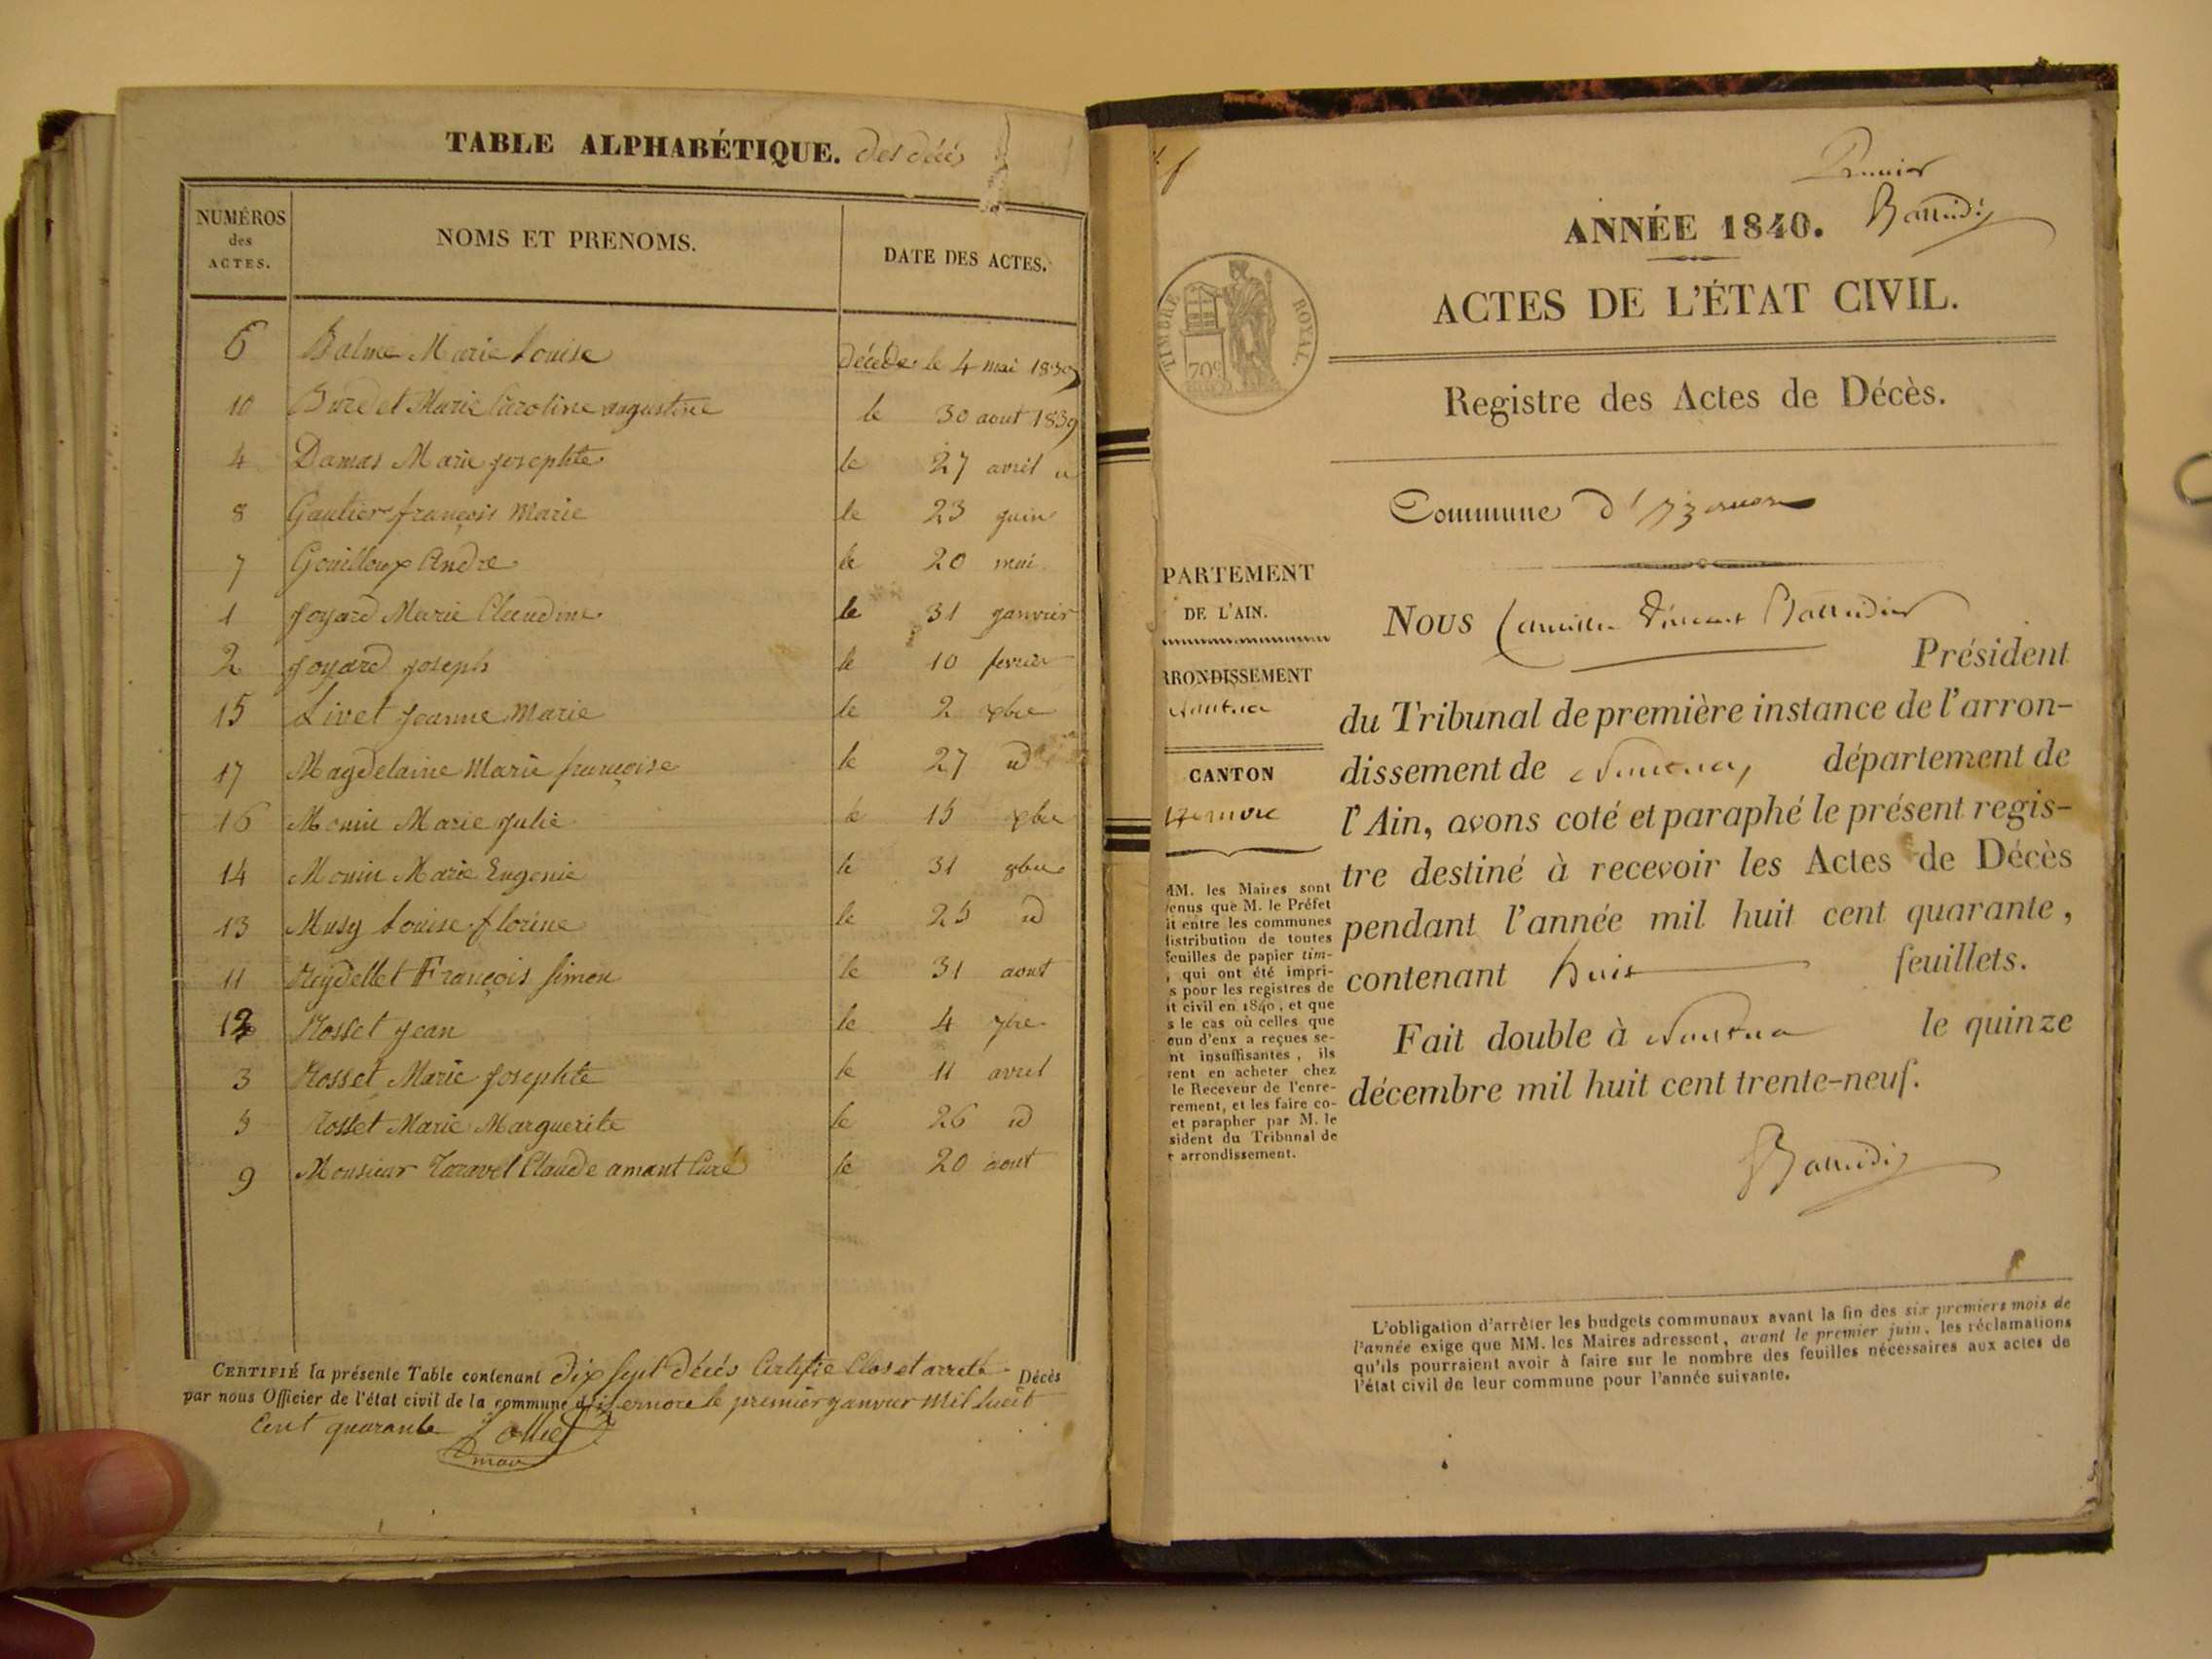 TABLE ALPHABÉTIQUE. des décès
NUMÉROS des ACTES. NOMS ET PRENOMS. DATE DES ACTES.
6 Balme Marie Louise décédée le 4 mai 1839
10 Burdet Marie Caroline augustine le 30 aout 1839
4 Damas Marie josephte le 27 avril id
8 Gautier françois Marie le 23 juin
7 Gouilloux Andre le 20 mai
1 joyard Marie Claudine le 31 janvier
2 joyard joseph le 10 fevrier
15 Livet jeanne Marie le 2 xbre
17 Magdelaine Marie françoise le 27 id
16 Monin Marie julie le 15 xbre
14 Monin Marie Eugenie le 31 8bre
13 Musy Louise florine le 25 id
11 Reydellet François Simon le 31 aout
12 Rosset jean le 4 7bre
3 Rosset Marie josephte le 11 avril
5 Rosset Marie Marguerite le 26 id
9 Monsieur Taravel Claude amant Curé le 20 aout
CERTIFIÉ la présente Table contenant dix sept décés Certifie Clos et arreté Décès
par nous Officier de l'état civil de la commune d'isernore le premier janvier Mil huit
Cent quarante
Premier
ANNÉE 1840.
TIMBRE ROYAL.
70c
ACTES DE L'ÉTAT CIVIL.
Registre des Actes de Décès.
Commune d'Izernore
PARTEMENT
DE L'AIN.
RRONDISSEMENT
Nantua
CANTON
Izernore
MM. les Maires sont
enus que M. le Préfet
it entre les communes
distribution de toutes
feuilles de papier tim-
, qui ont été impri-
s pour les registres de
it civil en 1840, et que
s le cas où celles que
cun d'eux a reçues se-
nt insuffisantes, ils
ront en acheter chez
le Receveur de l'enre-
rement, et les faire co-
et parapher par M. le
sident du Tribunal de
arrondissement.
Nous Camille Vincent Balleidier
Président
du Tribunal de première instance de l'arron-
dissement de Nantua, département de
l'Ain, avons coté et paraphé le présent regis-
tre destiné à recevoir les Actes de Décès
pendant l'année mil huit cent quarante,
contenant huit feuillets.
Fait double à Nantua le quinze
décembre mil huit cent trente-neuf.
L'obligation d'arrêter les budgets communaux avant la fin des six premiers mois de
l'année exige que MM. les Maires adressent, avant le premier juin, les réclamations
qu'ils pourraient avoir à faire sur le nombre des feuilles nécessaires aux actes de
l'état civil de leur commune pour l'année suivante.